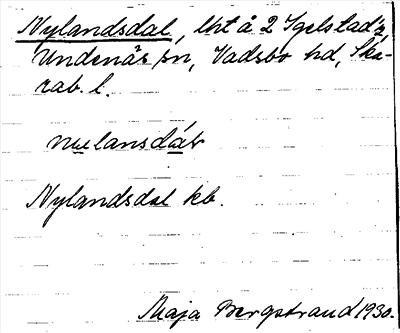 Nylandsdal, lht å 2 Igelstad'n
Undenäs sn, Vadsbo hd, Ska-
rab. l.
Nylandsdal kb.
Maja Bergstrand 1930.